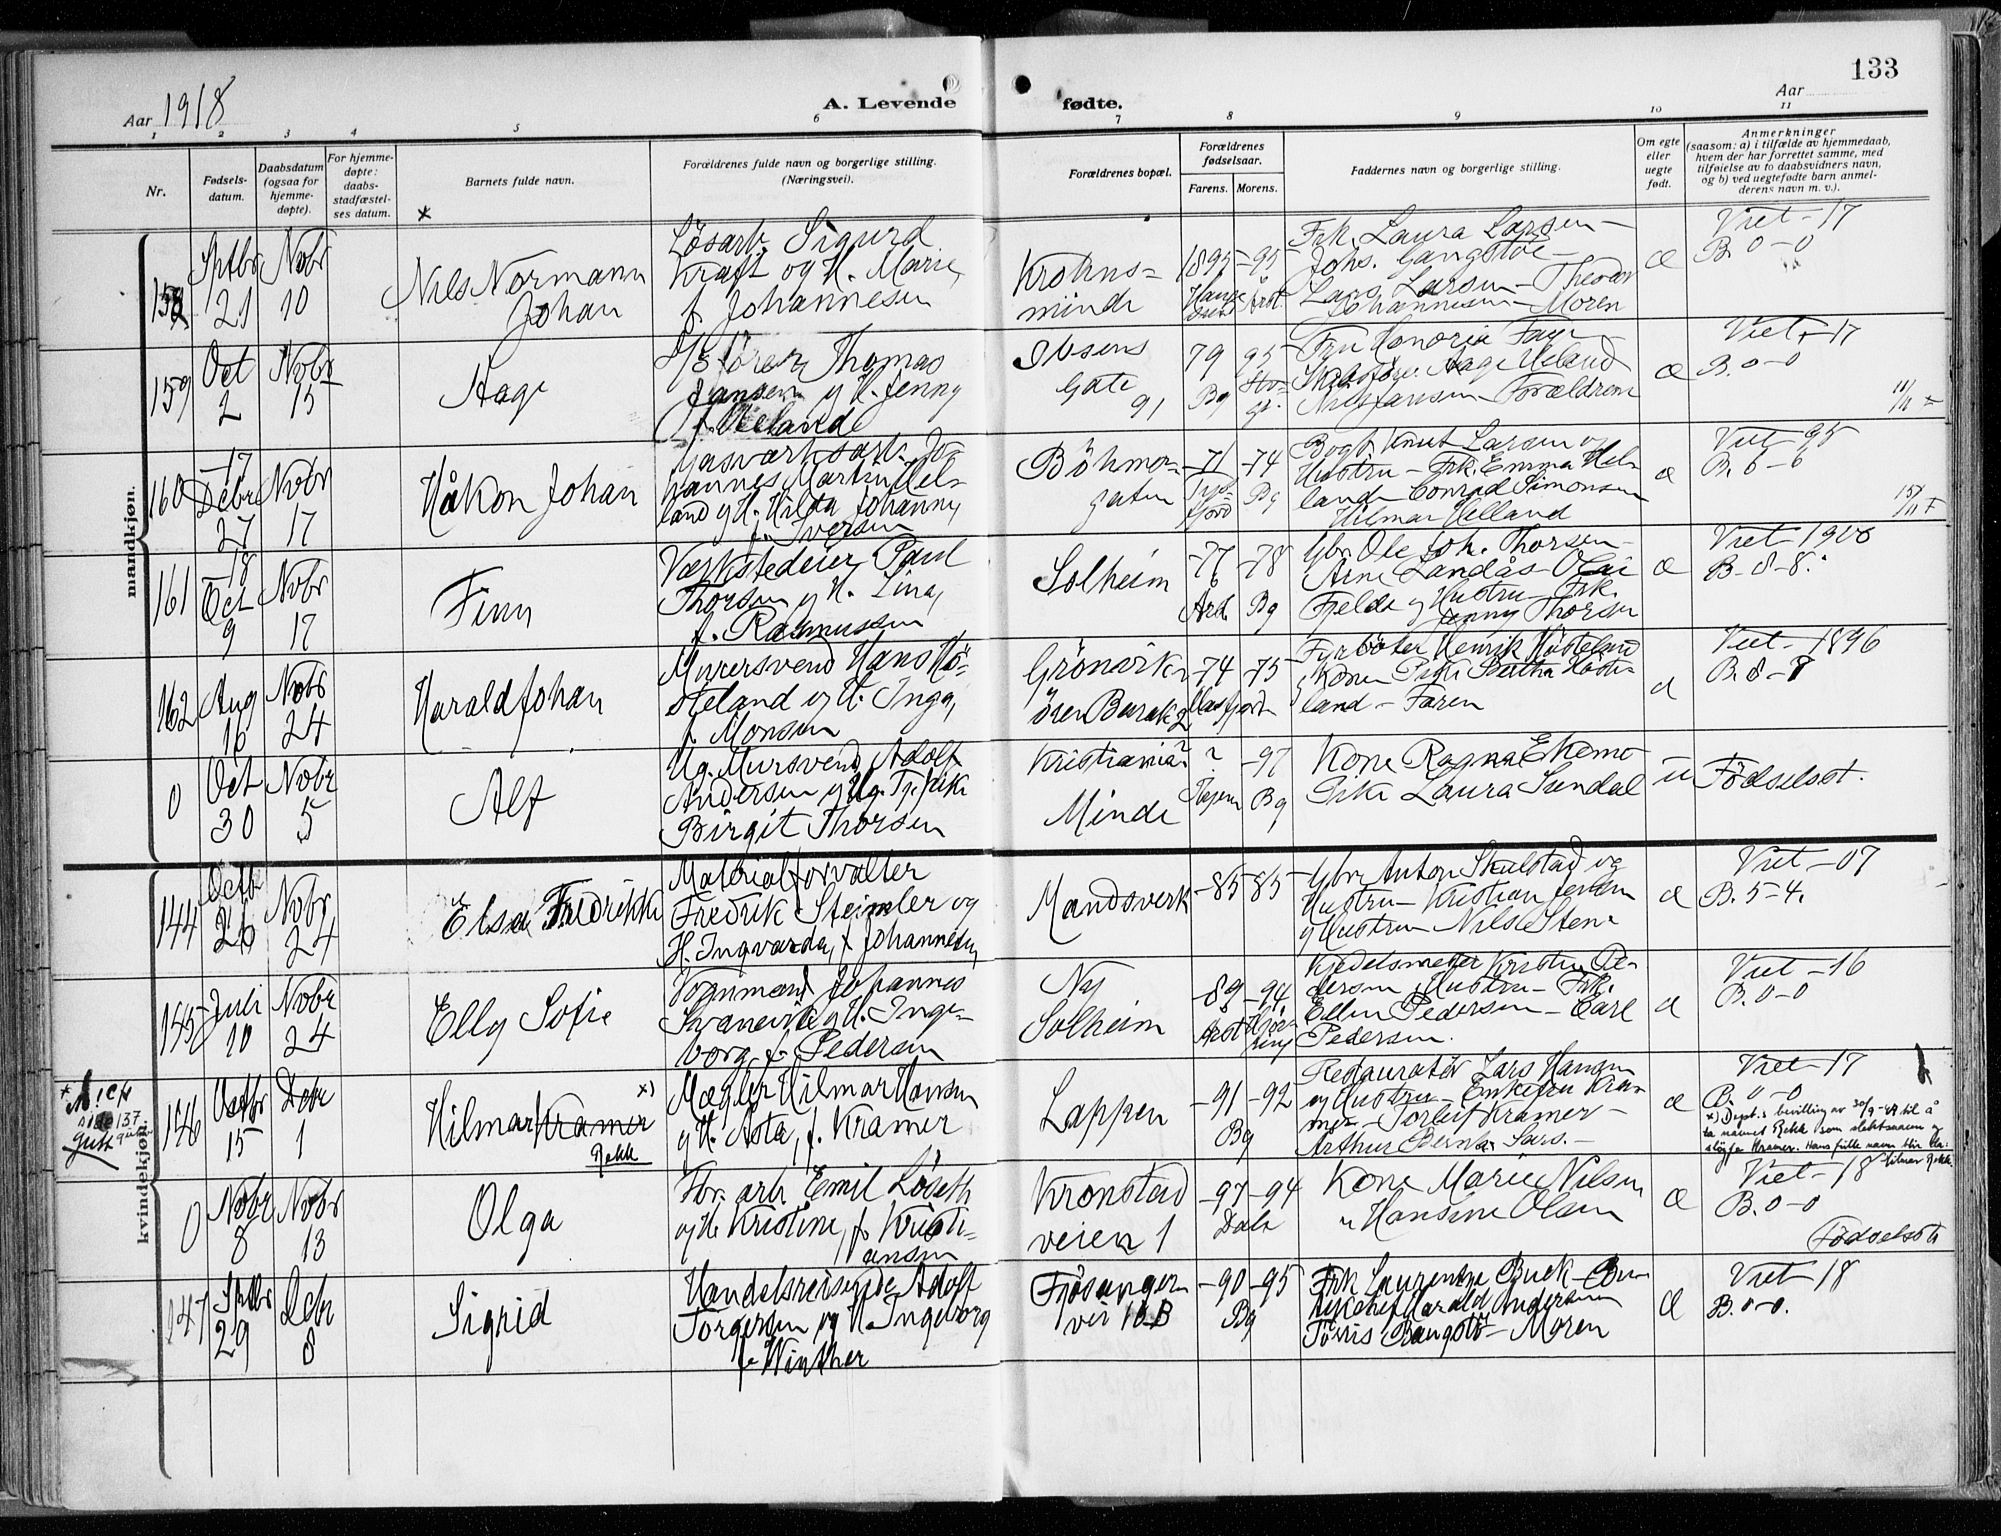 133
Aar 1918
A. Levende fødte.
Aar
1 2 3 4 5 6 7 8 9 10 11
Nr.
Fødsels-
datum.
Daabsdatum
(ogsaa for
hjemme-
døpte).
For hjemme-
døpte:
daabs-
stadfæstel-
ses datum.
Barnets fulde navn.
Forældrenes fulde navn og borgerlige stilling.
(Næringsvei).
Forældrenes bopæl.
Forældrenes
fødselsaar.
Farens. Morens.
Faddernes navn og borgerlige stilling.
Om egte
eller
uegte
født.
Anmerkninger
(saasom: a) i tilfælde av hjemmedaab,
hvem der har forrettet samme, med
tilføielse av to daabsvidners navn,
og b) ved uegtefødte barn anmel-
derens navn m. v.).
mandkjøn.
158
Sptbr
21
Nobr
10
Nils Normann
Johan
Løsarb. Sigurd
Kraft og H. Marie,
f. Johannesen
Krohns-
minde
1895 -95
Frk. Laura Larsen -
Johs. Gangstøe -
Lars Larsen - Theodor
Johannesen - Moren
æ
Viet -17
B. 0-0
159
Oct
2
Nobr
15
Aage
Thomas
Jansen og H. Jenny
f. Meland
Ibsens
Gate
91
79 95
Bg
Fru Honoria
Aage Meland
Forældrene
æ
Viet -17
B. 0-0
160
-17
Debr
27
Nobr
17
Håkon Johan
Gasværksarb. Jo-
hannes Martin Hel-
land og H. Hilda Johanny
f. Iversen
Böhmer-
gaten
-71 -74
Bg
Bogb. Knut Larsen og
Hustru - Frk. Emma Hel-
land - Conrad Simonsen
Hilmar Helland
æ
Viet -95
B. 6-6
161
18
Oct
9
Nobr
17
Finn
Værkstedeier Paul
Thorsen og H. Lina,
f. Rasmussen
Solheim
-77 -78
Ard. Bg
Gbr. Ole Joh. Thorsen -
Arne Landås -
Fjelde og Hustru - Frk.
Jenny Thorsen
æ
Viet 1900
B. 8-8
162
Aug
16
Nobr
24
Harald Johan
Murersvend Hans Hö-
steland og H. Inga,
f. Monsen
Grönvik-
ören Barak 2
-74 -75
Masfjorden
Fyrbøter Henrik Høsteland
Kone Pike Bertha Høste-
land - Faren
æ
Viet 1896
B. 8-8
0
Oct
30
Nobr
5
Alf
Ug. Mursvend Adolf
Andersen og Ug. Tj.pike
Birgit Thorsen
Kristiania?
Minde
? -97
Bg
Kone Ragna Ekemo
Pike Laura Sundal
u
Fødselsst.
kvindekjøn.
144
Octbr
26
Nobr
24
Elsa Fredrikke
Materialforvalter
Fredrik Steimler og
H. Ingvarda, f. Johannesen
Mandsverk
-85 85
Gbr. Anton Skulstad og
Hustru - Kristian
og Hustru Nilsie Stene
æ
Viet -07
B. 5-4.
145
Juli
10
Nobr
24
Elly Sofie
Formand Johannes
Svanevik og H. Inge-
borg f. Pedersen
Ny
Solheim
-89 -94
Kjedelsmed Kristen Pe-
dersen og Hustru - Frk.
Ellen Pedersen - Carl
Pedersen.
æ
Viet -16
B. 0-0
side 137
gutt
146
Octbr
15
Debr
1
Hilmar Kramer x)
Rekk
Mægler Hilmar Hansen
og H. Asta, f. Kramer
Lappen
-91 -92
Bg
Restauratør Lars Hansen
og Hustru - Enkefru Kra-
mer - Torleif Kramer -
Arthur
æ
Viet -17
B. 0-0
x) Dept.s bevilling av 30/9-49 til å
ta navnet Rekk som slektsnavn og
sløyfe Kramer. Hans fulle navn blir da:
Hilmar Rekk.
0
Nobr
8
Nobr
13
Olga
Fbr. arb. Emil Lødeth
og H. Kristine, f. Kristi-
ansen
Kronstad
veien 1
-97 -94
Dale
Kone Marie Nilsen
" Hansine Olsen
æ
Viet -18
B. 0-0
Fødselsst.
147
Sptbr
29
Debr
8
Sigrid
Handelsreisende Adolf
Torgersen og H. Ingeborg
f. Winther
Fjøsanger-
vei 16B
-90 -95
Bg
Frk Laurentze Buck - Bu-
reauchef Harald Andersen
Tørris Rangstö - Moren
æ
Viet 18
B. 0-0.